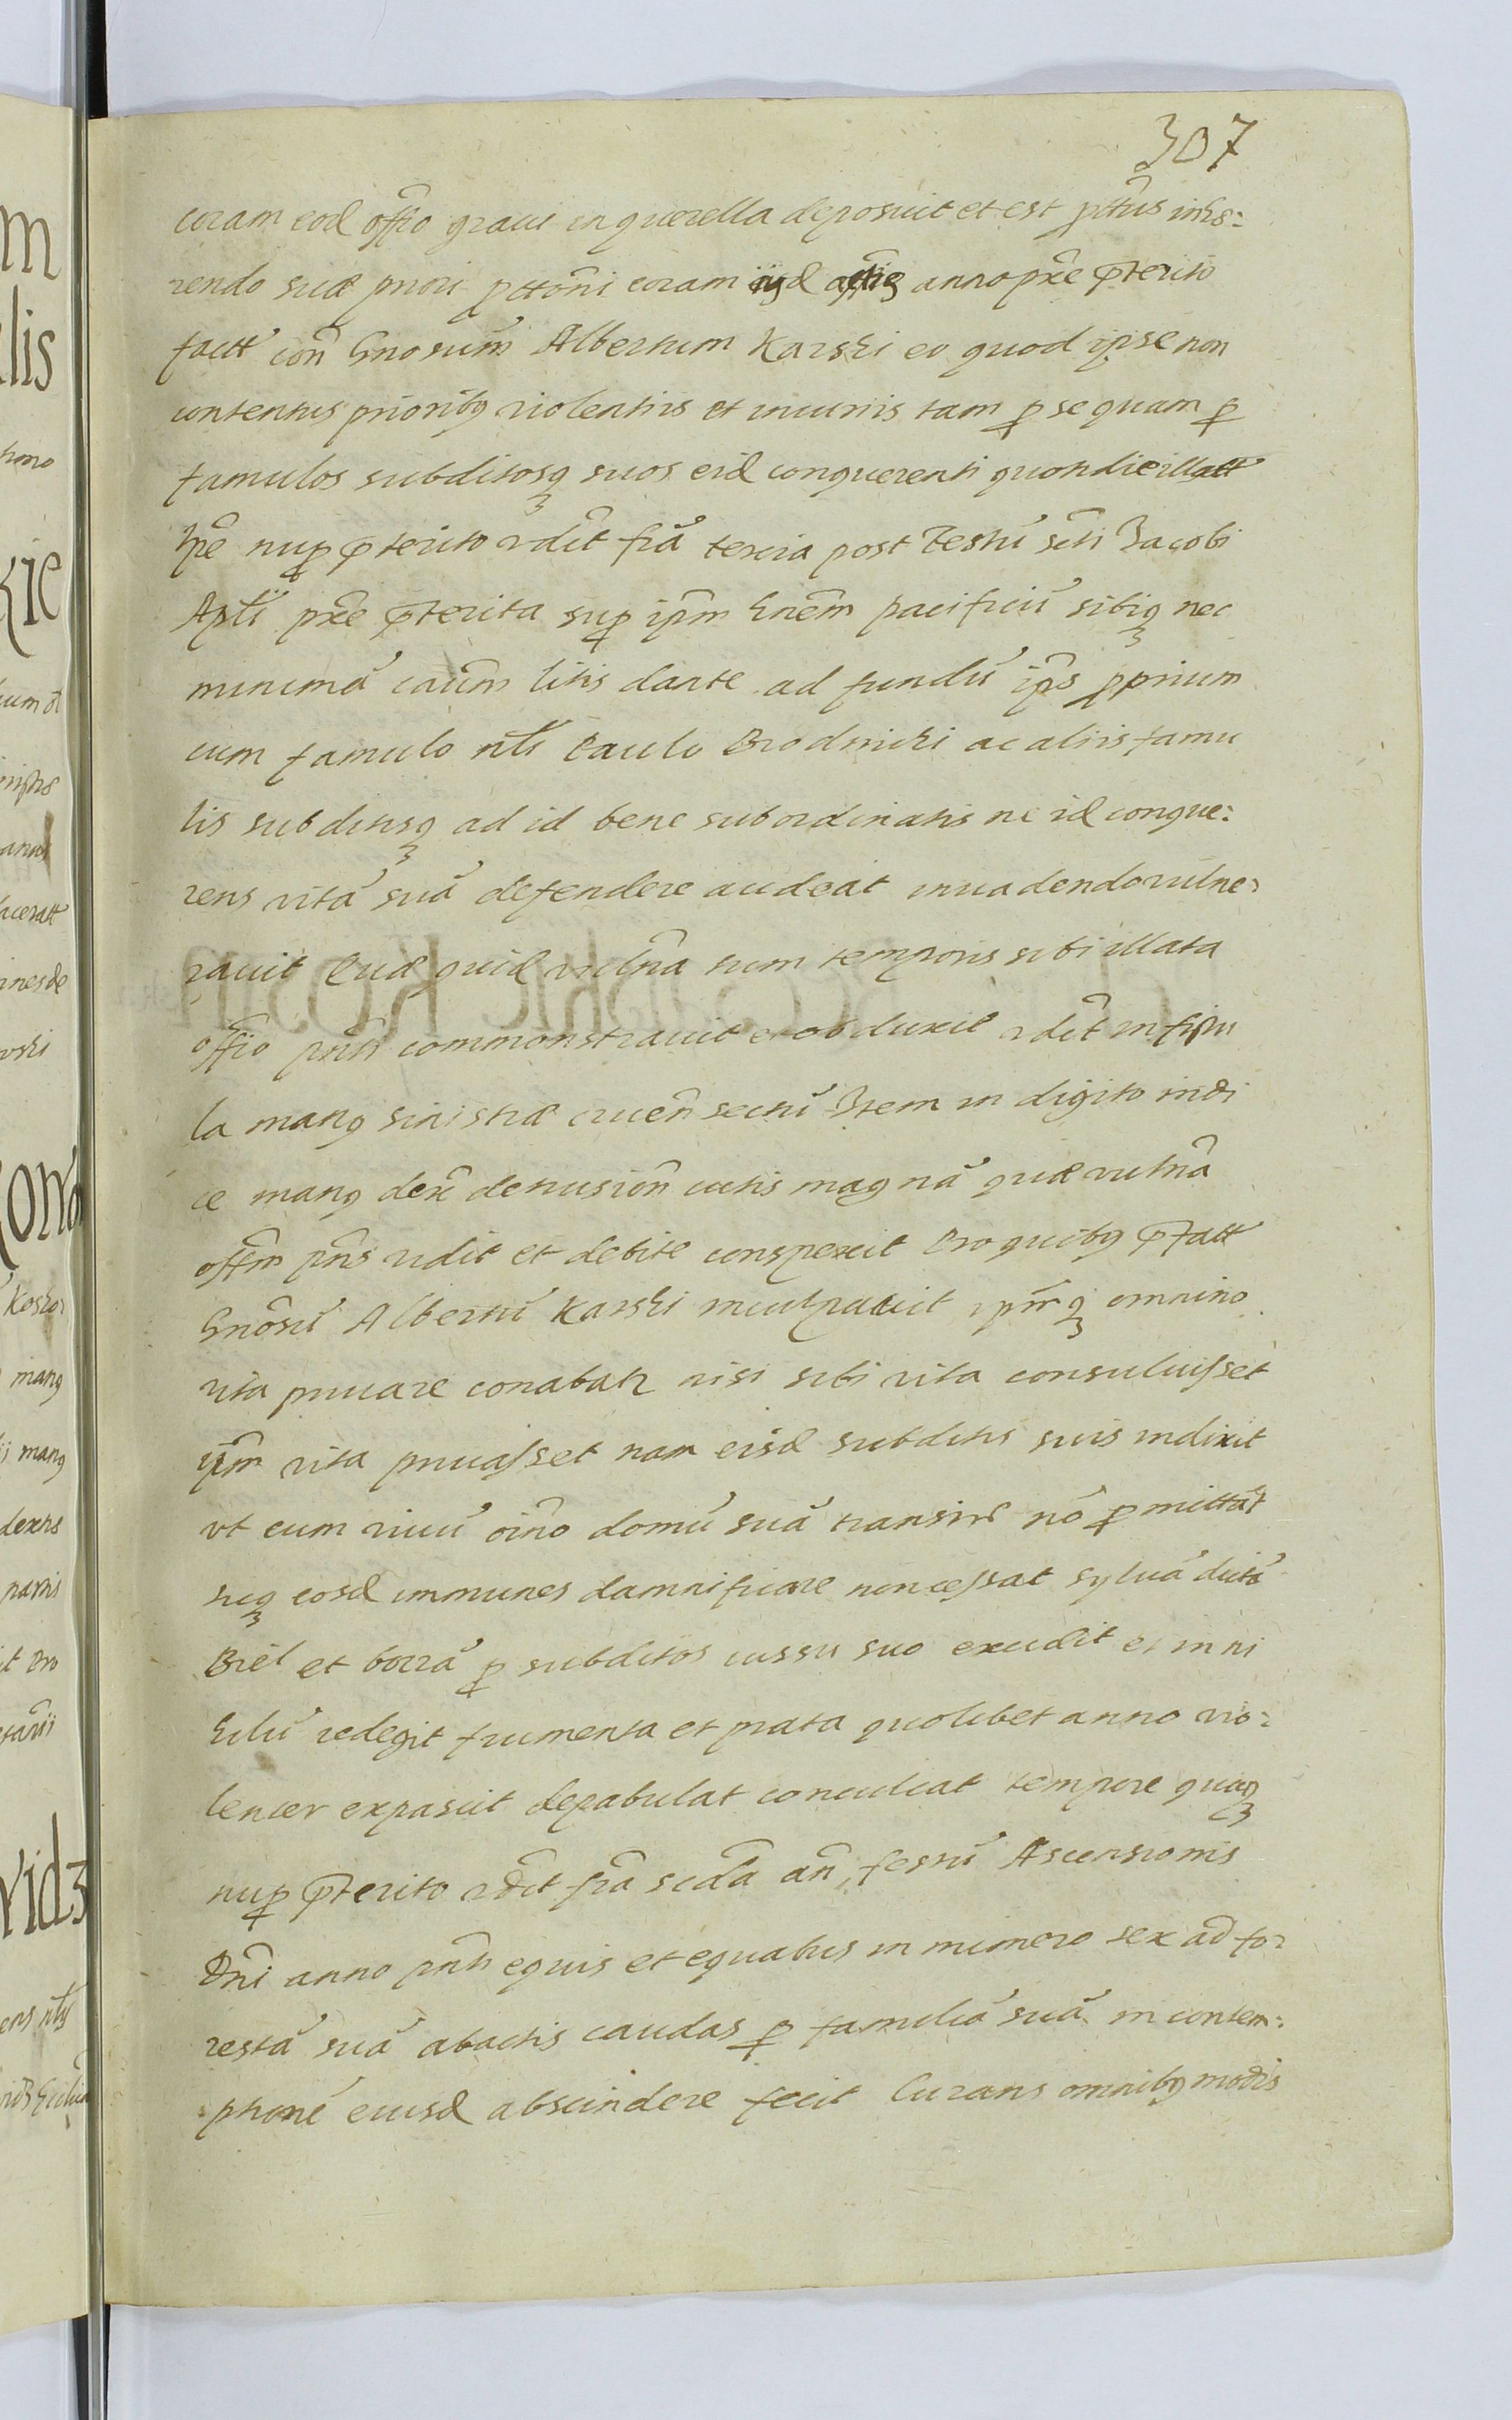 307
coram eod offo graui in querella deposuit et est pttus inhę:
rendo suæ priori pttoni coram iisd actis anno pxe pterito
factt con Gnosum Albertum Karski eo quod ipse non
contentus prioribq violentiis et iniuriis tam p se quam p
famulos subditosq suos eid conquerenti quotidie illatt
tpe nup pterito vdet fia tercia post Festu scti Jacobi
Apli pxe pterita sup ipm hoem pacificu sibiq nec
minima caum litis dante ad fundu ips pprium
cum famulo nli Paulo Brodnicki ac aliis famu
lis subditisq ad id bene subordinatis ne id conque:
rens vita sua defendere audeat inuadendo vulne
rauit Quæ quid vulna tum temporis sibi illata
offo pnti commonstrauit et obduxit vdet in
la manq sinistræ cruen sectu Item in digito indi
ce manq dex detrusion cutis magna quæ vulna
offm pns vidit et debite conspexit Pro quibq pfatt
Gnosu Albertu Karski inculpauit ipmq omnino
vita priuare conabatr nisi sibi vita consuluisset
ipm vita priuasset nam eisd subditis suis indixit
vt eum viuu oino domu sua transire no pmittat
neq eosd immunes damnificare non cessat sylua dicta
Biel et borra p subditos iussu suo excidit et in ni
hilu redegit frumenta et prata quolibet anno vio:
lenter expascit depabulat conculcat tempore quoq
nup pterito vdet fia scda an festu Ascensionis
Dni anno pnti equis et equabus in numero sex ad fo
resta sua abactis caudas p familia sua in contem:
ptione eiusd abscindere fecit Curans omnibq modis